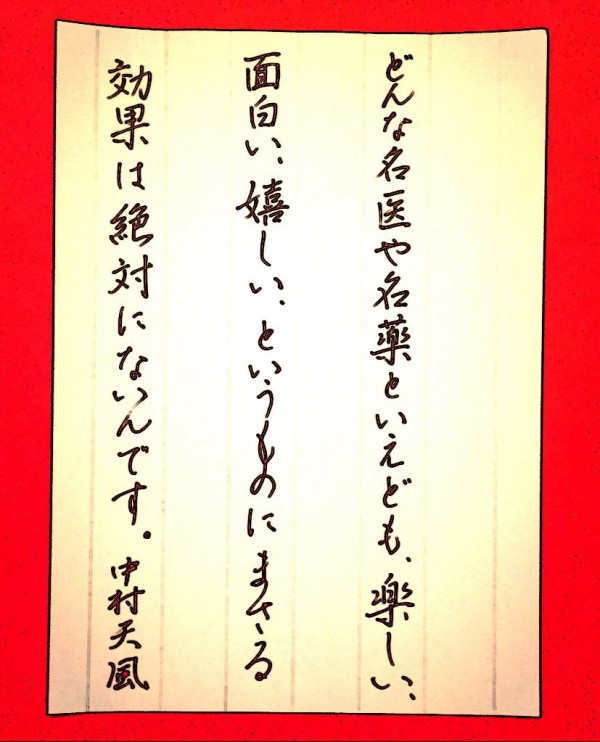 どんな名医や名薬といえども、楽しい、
面白い、嬉しい、というものにまさる
効果は絶対にないんです。中村天風